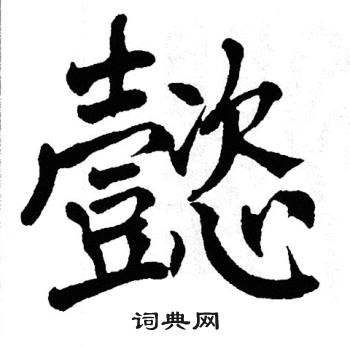 懿
词典网